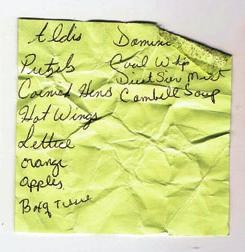 Aldis
Pretzels
Cornish Hens
Hot Wings
Lettice
orange
apples
Bag Tissue
Domini
Cool Whip
Diet Sier Mist
Cambell Soup